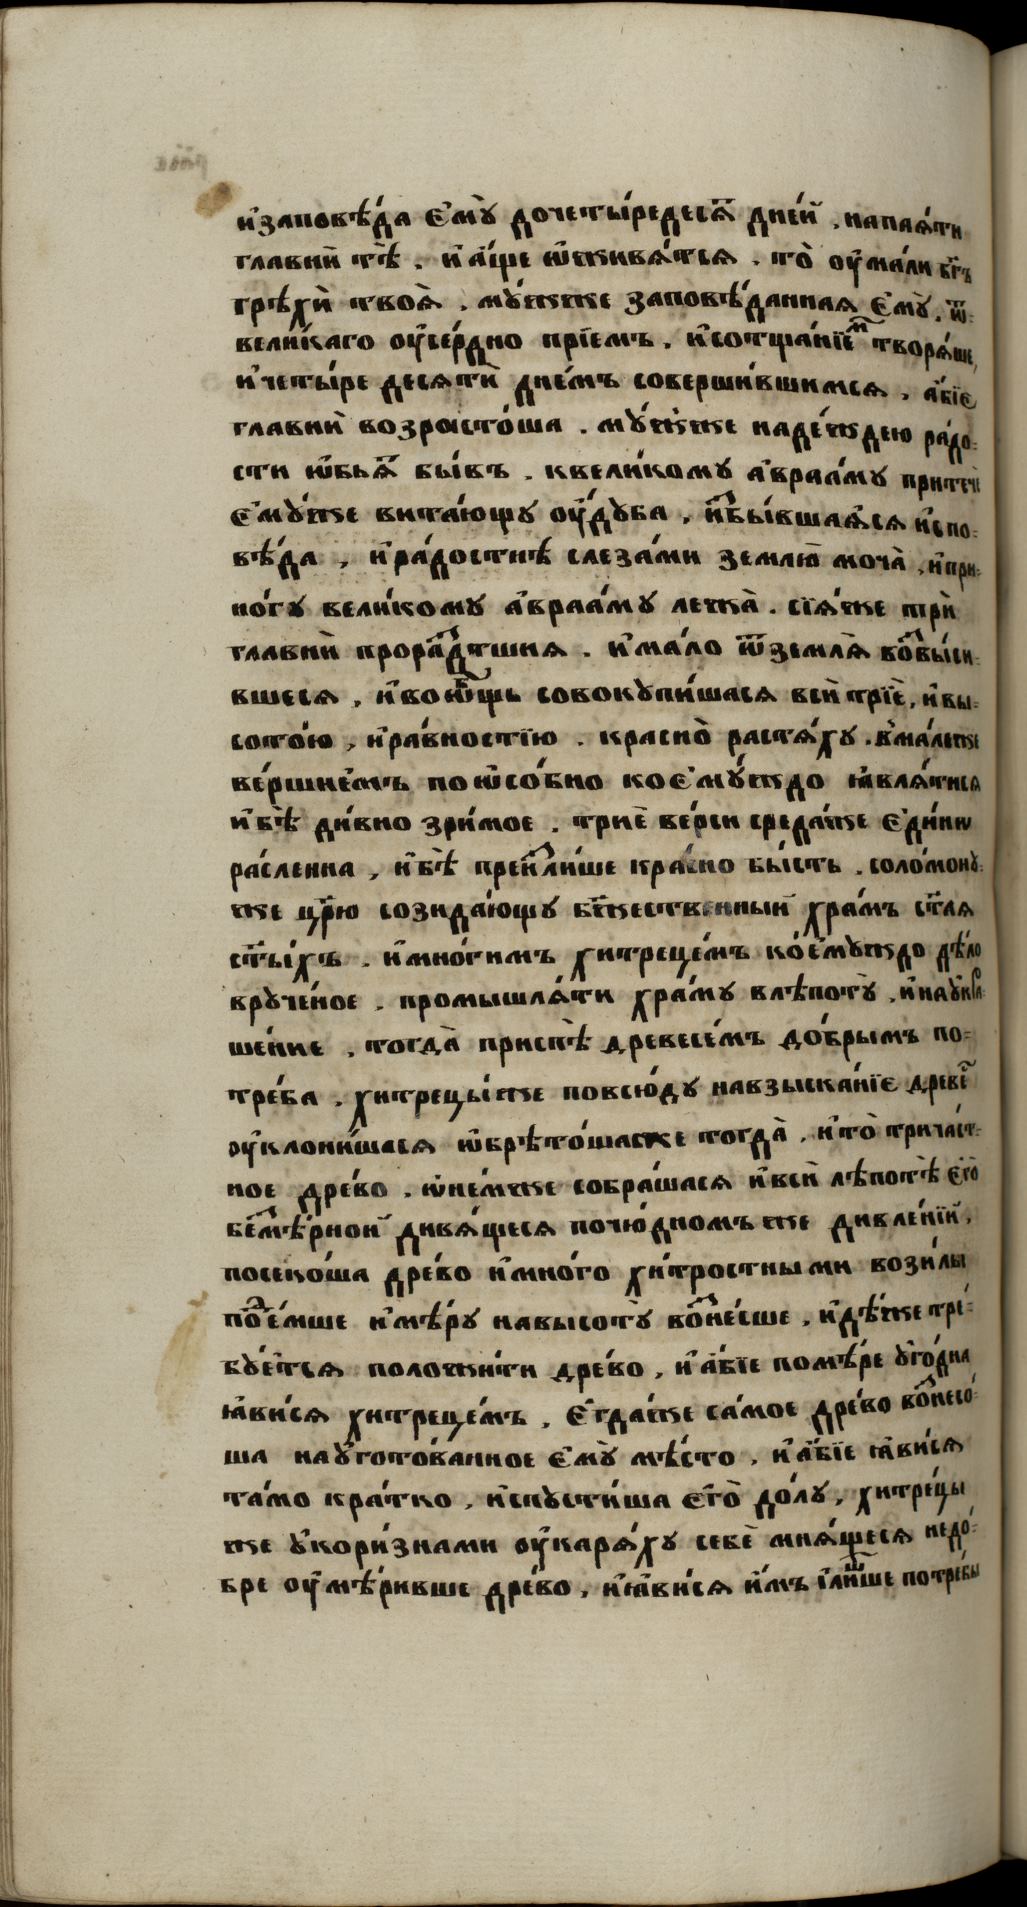 и҆заповѣ́да є҆мꙋ̀ дочеты́редесѧⷮ дне́й . напаѧ́ти
главнѝ тѣ̀ . и҆ а҆́ще ѡ҆живѧ́тсѧ . то̀ оу҆мали бг҃ъ
грѣхѝ твоѧ̀ . мꙋ́жже заповѣ́данная є҆мꙋ̀ . ѿ
вели́каго оу҆се́рдно прїемъ . и҆сотща́нїеⷨ творѧ́ше,
и҆четы́ре десѧтѝ дне́мъ соверши́вшимсѧ . а҆́бїе
главнѝ возрасто́ша . мꙋ́жже наде́ждею ра́до-
сти ѡ҆б̾ѧⷮ бы́въ . квели́комꙋ а҆враа́мꙋ притечѐ
є҆мꙋ́же вита́ющꙋ оу҆дꙋ́ба , и҆збы́вшаѧсѧ и҆спо-
вѣ́да , и҆ра́достнѣ слеза́ми землю̀ моча̀ , и҆при
но́гꙋ вели́комꙋ а҆враа́мꙋ лежа̀ . сїѧ́же трѝ
главнѝ прораⷥдшия . и҆ма́ло ѿземлѧ̀ воⷥвы́си-
вшесѧ , и҆воѻ҆́бщь совокꙋпи́шасѧ всѝ трїѐ, и҆вы-
сото́ю , и҆ра́вностїю . красно̀ растѧ́хꙋ . в̾ма́лѣже
ве́ршиемъ поѡ҆со́бно коемꙋ́ждо ꙗ҆влѧ́тисѧ
и҆бѣ̀ ди́вно зри́мое . триѐ ве́рси среда́же є҆ди́ни
ра́сленна , и҆бѣ̀ преиⷥли́ше кра́сно бы́сть . соло́монꙋ-
же цр҃ю созида́ющꙋ бж҃ественный хра́мъ ст҃ая
ст҃ы́хъ . и҆мно́гимъ хитреце́мъ коемꙋ́ждо дѣ́ло
врꙋче́ное . промышлѧ́ти хра́мꙋ влѣпотꙋ̀ , и҆наꙋ҆кра-
ше́ние . тогда̀ приспѣ̀ древесе́мъ до́брымъ по-
тре́ба . хитрецы́же повсю́дꙋ навзыска́нїе древеⷭ
оу҆клони́шасѧ ѡ҆брѣто́шаже тогда̀ . и҆то̀ трича́ст-
ное дре́во . ѡ҆не́мже собра́шасѧ и҆всѝ лѣпотѣ̀ є҆гѡ̀
беⷥмѣ́рной дивѧ́щесѧ почю́дномъ же дивле́нїй ,
посеко́ша дре́во и҆мно́го хи́тростными вози́лы
поⷣе́мше и҆мѣ́рꙋ навысотꙋ̀ воⷥне́сше , и҆дѣ́же тре́-
бꙋется положи́ти дре́во , и҆ а҆́бїе помѣ́ре ꙋ҆го́дна
ꙗ҆ви́сѧ хитреце́мъ . є҆гда́же са́мое дре́во воⷥнесо́-
ша наꙋ҆гото́ванное є҆мꙋ̀ мѣ́сто , и҆ а҆́бїе ꙗ҆ви́сѧ
та́мо кра́тко , и҆спꙋсти́ша є҆го̀ до́лꙋ , хитре́цы
же ꙋ҆кори́знами оу҆карѧ́хꙋ себѐ мнѧ́щесѧ недо́-
бре оу҆мѣ́ривше дре́во , и҆ꙗ҆ви́сѧ и҆̀мъ и҆зли́шше потре́бы